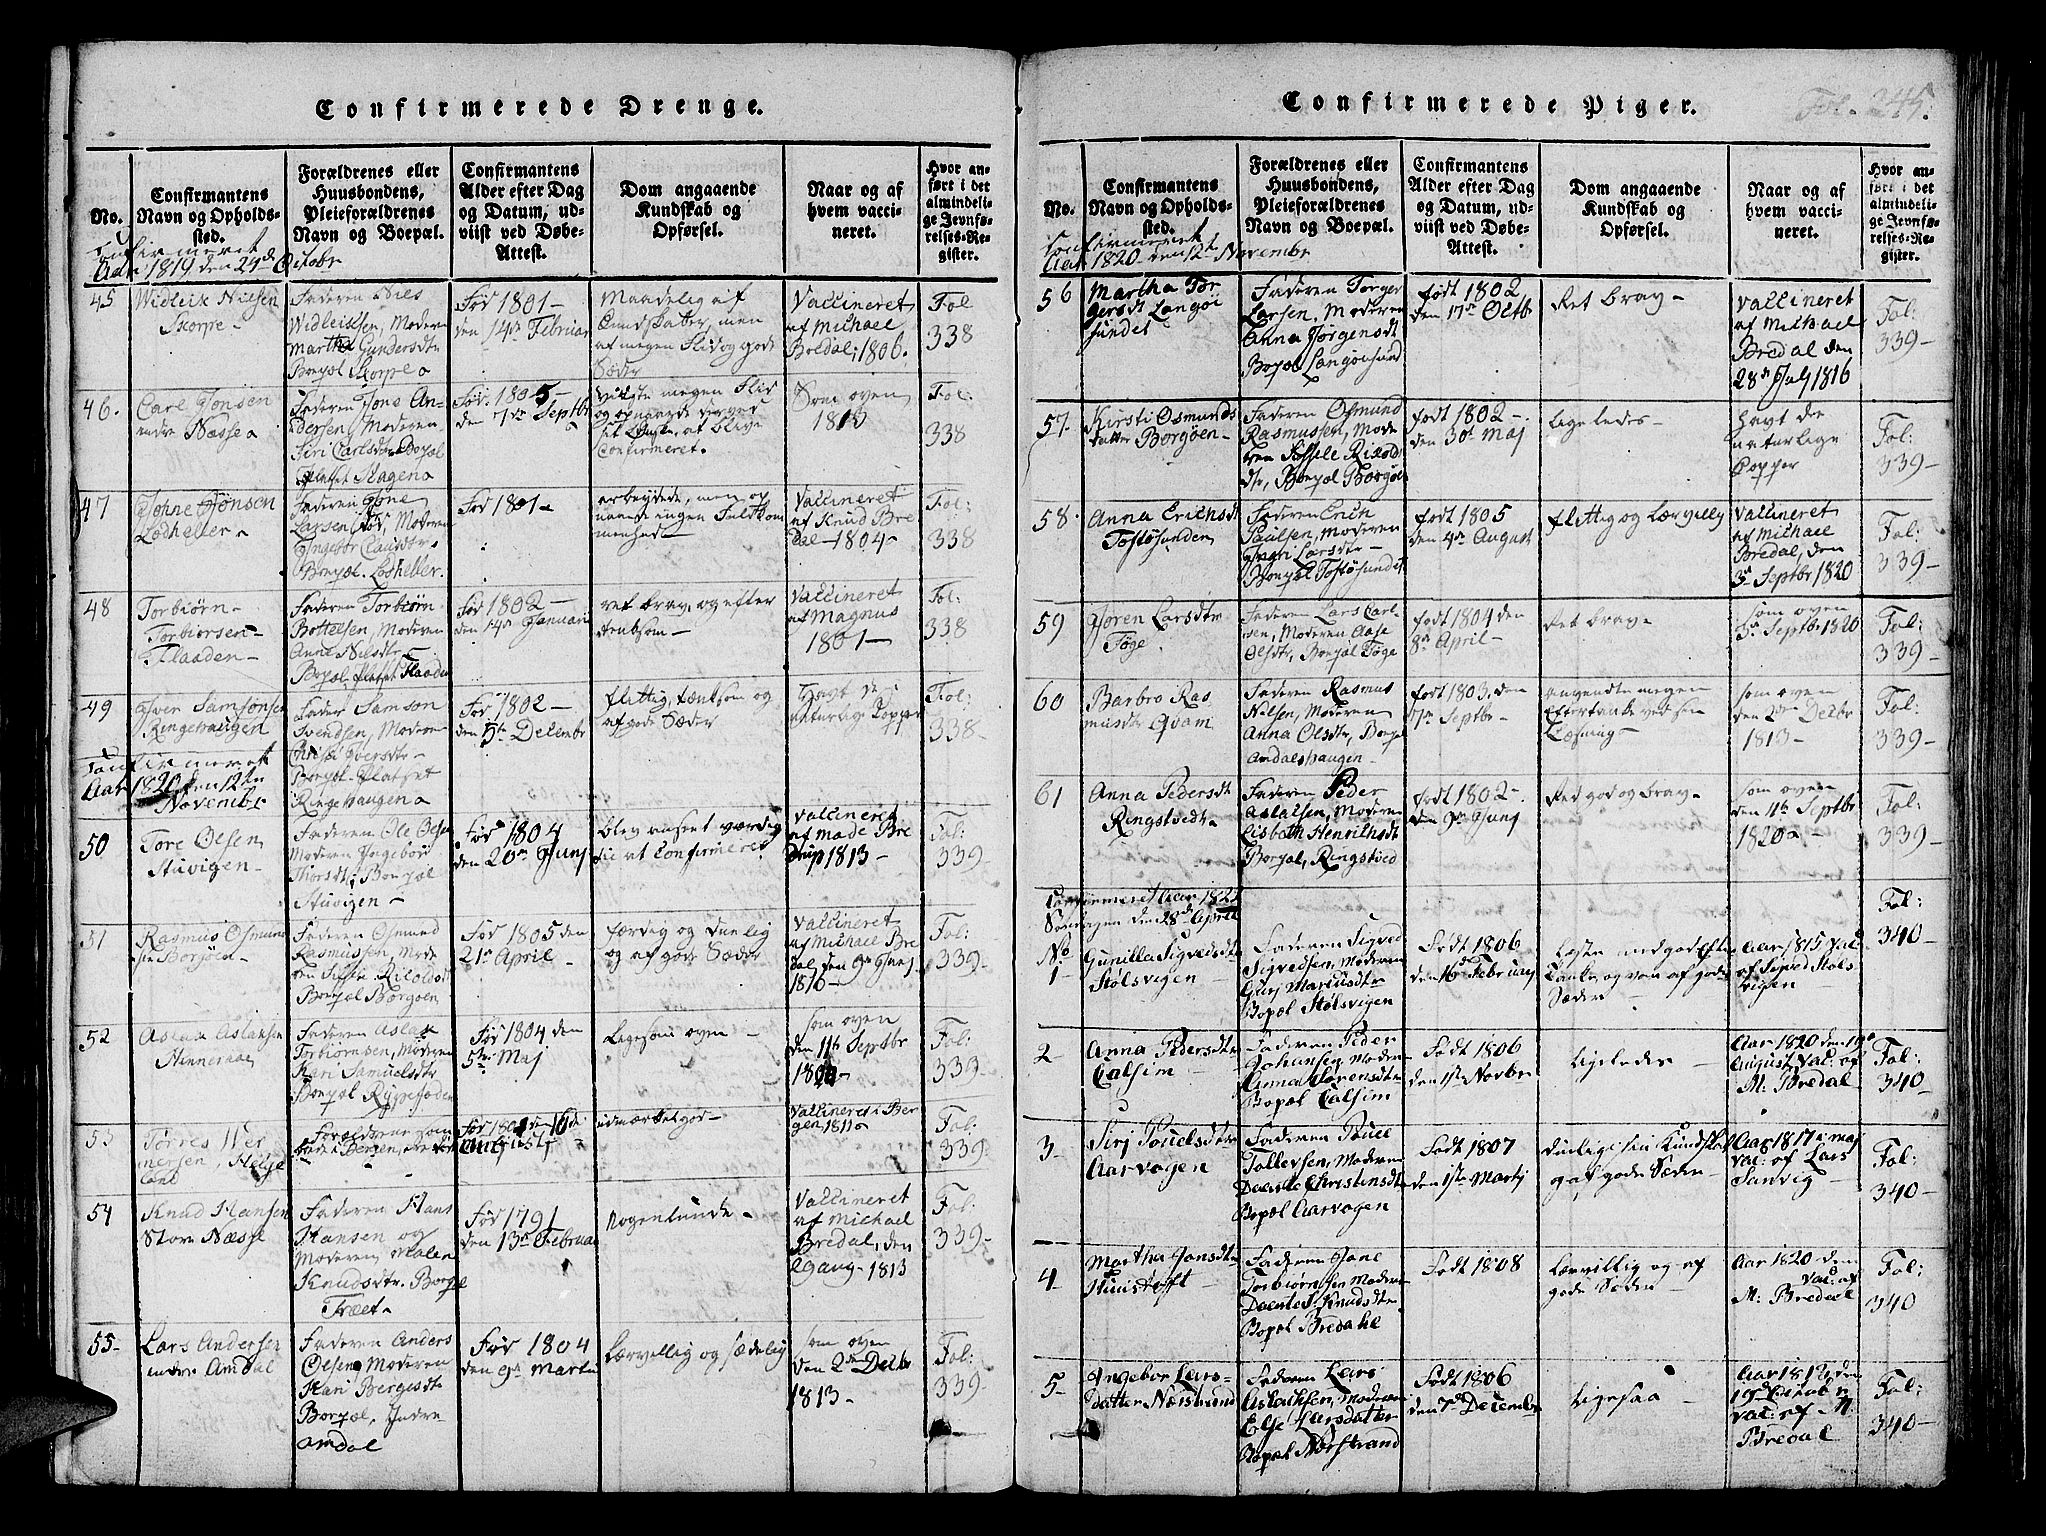 Confirmerede Drenge.
No.
Confirmantens
Navn og Opholds-
sted.
Forældrenes eller
Huusbondens,
Pleieforældrenes
Navn og Boepæl.
Confirmantens
Alder efter Dag
og Datum, ud-
viist ved Døbe-
Attest.
Dom angaaende
Kundskab og
Opførsel.
Naar og af
hvem vacci-
neret.
Hvor an-
ført i det
almindeli-
ge Jevnfø-
relses-Re-
gister.
Confirmeret
Aar 1819 den 24de Octobr
45
Widleik Nielsen
Skorpe
Faderen Niels
Widleiksen, Moderen
Martha Gundersdtr
Boepæl Skorpe
Fød 1801
den 14de Februar
Maadelig af
Kundskaber, men
af megen Flid og gode
Sæder
Vaccineret
af Michael
Bredal, 1806.
Fol
338
46.
Carl Jonsen
nedre Næsse
Faderen Jons An-
dersen, Moderen
Siri Carlsdtr Boepæl
Pladset Hagen
Fød 1805
den 7de Septbr
viiste megen Flid
Confirmeret.
Som oven
1813
Fol:
338
47
Johne Jonsen
Lodheller
Faderen Jone
Larsen, Moderen
Ingebor Clausdtr
Boepæl Losheller
Fød 1801
arbeydede, men op
naaede ingen Fuldkom
menhed
Vaccineret
af Knud Bre
dal 1804
Fol:
338
48
Torbiørn
Torbiørsen
Flaaden
Faderen Torbiørn
Bottelsen, Moderen
Anna Nilsdtr
Boepæl, pladset Flaaden
Fød 1802
den 14de Januari
ret brav, og efter
tenksom
Vaccineret
af Magnus
1801
Fol:
338
49
Iver Samsonsen
Ringehaugen
Fader Samson
Svendsen, Moderen
Boepæl Pladset
Ringehaugen
Fød 1802
den 5te Decembr
flittig, tænksom og
af gode Sæder
Havt de
naturlige Kopper
Fol:
338
Confirmeret
Aar 1820 den 12te
Novembr
50
Tore Olsen
Stuvigen
Faderen Ole Olsen
Moderen Ingebor
Thorsdtr, Boepæl
Stuvigen
Fød 1804
den 20de Junj
blev anseet værdig
til at Confirmeres
Vaccineret
af Made Bre
1813
Fol:
339
51
Rasmus Osmund
sen Borgøen
Faderen Osmund
Rasmussen, Mode
ren Sissele Ricoldsdtr
Boepæl Borgøen
Fød 1805 den
21de April
færdig og duelig
og af gode Sæder
Vaccineret
af Michael Bre
dal, den 9de Junj
1816
Fol:
339
52
Aslak Aslaksen
Hinneraa
Faderen Aslak
Torbiørnsen, Moderen
Kari Samuelsdtr
Boepæl
Fød 1804 den
5te Maj
Ligesom oven
som oven
den 11te Septbr
1820
Fol:
339
53
Torres Wer
nersen,
Forældrene som
boede i Bergen, ere døde
August
udmærket god
Vaccineret i Ber
gen 1811
Fol:
339
54
Knud Hansen
Store Næsse
Faderen Hans
Hansen og
Moderen Malene
Knudsdtr. Boepæl
Træet
Fød 1791
den 13de Februar
Nogenlunde
Vaccineret
af Michael
Bredal, den
1813
Fol:
339
55
Lars Andersen
indre Amdal
Faderen Anders
Olsen, Moderen
Kari Bergesdtr
Boepæl, Indre
Amdal
Fød 1804
den 9de Martii
Lærvellig og sædelig
som oven
den 2den Decbr
1813
Fol:
339
Confirmerede Piger.
Fol. 245.
No.
Confirmantens
Navn og Opholds-
sted.
Forældrenes eller
Huusbondens,
Pleieforældrenes
Navn og Boepæl.
Confirmantens
Alder efter Dag
og Datum, ud-
viist ved Døbe-
Attest.
Dom angaaende
Kundskab og
Opførsel.
Naar og af
hvem vacci-
neret.
Hvor an-
ført i det
almindeli-
ge Jevnfø-
relses-Re-
gister.
Confirmeret
Aar 1820 den 12te Novembr
56
Martha Tor
gersdt Langøi
sundet
Faderen Torger
Larsen, Moderen
Anna Jørgensdt
Boepæl Langøisund
født 1802
den 17de Octbr
Ret brav
Vaccineret
af Michael
Bredal den
28de Julj 1816
Fol:
339
57
Kirsti Osmunds
datter Borgøen
Faderen Osmund
Rasmussen, Mode
ren Sissele Ricolds
dtr, Boepæl Borgøe
født 1802
den 30te Maj
Ligeledes
havt de
naturlige
Kopper
Fol:
339
58
Anna Erichsdt
Tostøsunden
Faderen Erich
Paulsen, Moderen
Inger Larsdtr
Boepæl Tostøsundet
født 1805
den 4de August
flittig og Lærvellig
Vaccineret
af Michael
Bredal, den
3de Septbr 1820
Fol:
339
59
Joren Larsdtr
Toge
Faderen Lars Carl-
sen, Moderen Aase
Olsdtr, Boepæl Toge
født 1804 den
8de April
Ret brav
som oven
3de Septbr 1820
Fol:
339
60
Barbro Ras
musdtr Qvam
Faderen Rasmus
Nilsen, Moderen
Anna Olsdtr, Boepæl
Amdalshaugen
født 1803. den
17de Septbr
anvendte megen
Eftertanke ved sin
Læsning
som oven
den 2den Decbr
1813
Fol:
339
61
Anna Pedersdt
Ringstvedt
Faderen Peder
Aslaksen, Moderen
Lisbeth Henrihsdt
Boepæl, Ringstved
født 1802
den 9de Junj
Ret god og brav
som oven
den 11te Septbr
1820
Fol:
339
Confirmeret Aar 1822
Søndagen den 28de April
No
1
Gunilla Sigvedsdtr
Stølsvigen
Faderen Sigved
Sigvedsen, Moderen
Gurj Mariusdtr
Bopæl Stølsvigen
Født 1806
den 16de Februarj
Læste med god Efter
Tanke og var af gode
Sæder
Aar 1815 Vac
af Sigved Støls
vigen
Fol:
340
2
Anna Pedersdtr
Calsim
Faderen Peder
Johansen, Moderen
Anna Sørensdtr
Bopæl Calsim
Født 1806
den 1ste Novbr
Ligeledes
Aar 1820 den
August Vac: af
M. Bredal
Fol:
340
3
Sirj Pouelsdtr
Aarvogen
Faderen Pouel
Tollevsen, Moderen
Daarte Christensdtr
Bopæl Aarvogen
Født 1807
den 1ste Martj
duelig i sin Kundskab
og af gode Sæder
Aar 1817 i Maj
Vac: af Lars
Sandvig
Fol:
340
4
Martha Jonsdtr
Faderen Jone
Torbiørnsen, Moderen
Daarte Knudsdtr
Bopæl Bredahl
Født 1808
Lærvillig og af
gode Sæder
Aar 1820 den
Vac: af
M: Bredal
Fol:
340
5
Ingebor Lars-
datter Nærstrand
Faderen Lars
Aslachsen, Moderen
Else Larsdatter
Bopæl Nerstrand
Født 1806
den 7de December
Ligesaa
Aar 1812, den
19de Octob
Vac: af M.
Bredal
Fol:
340